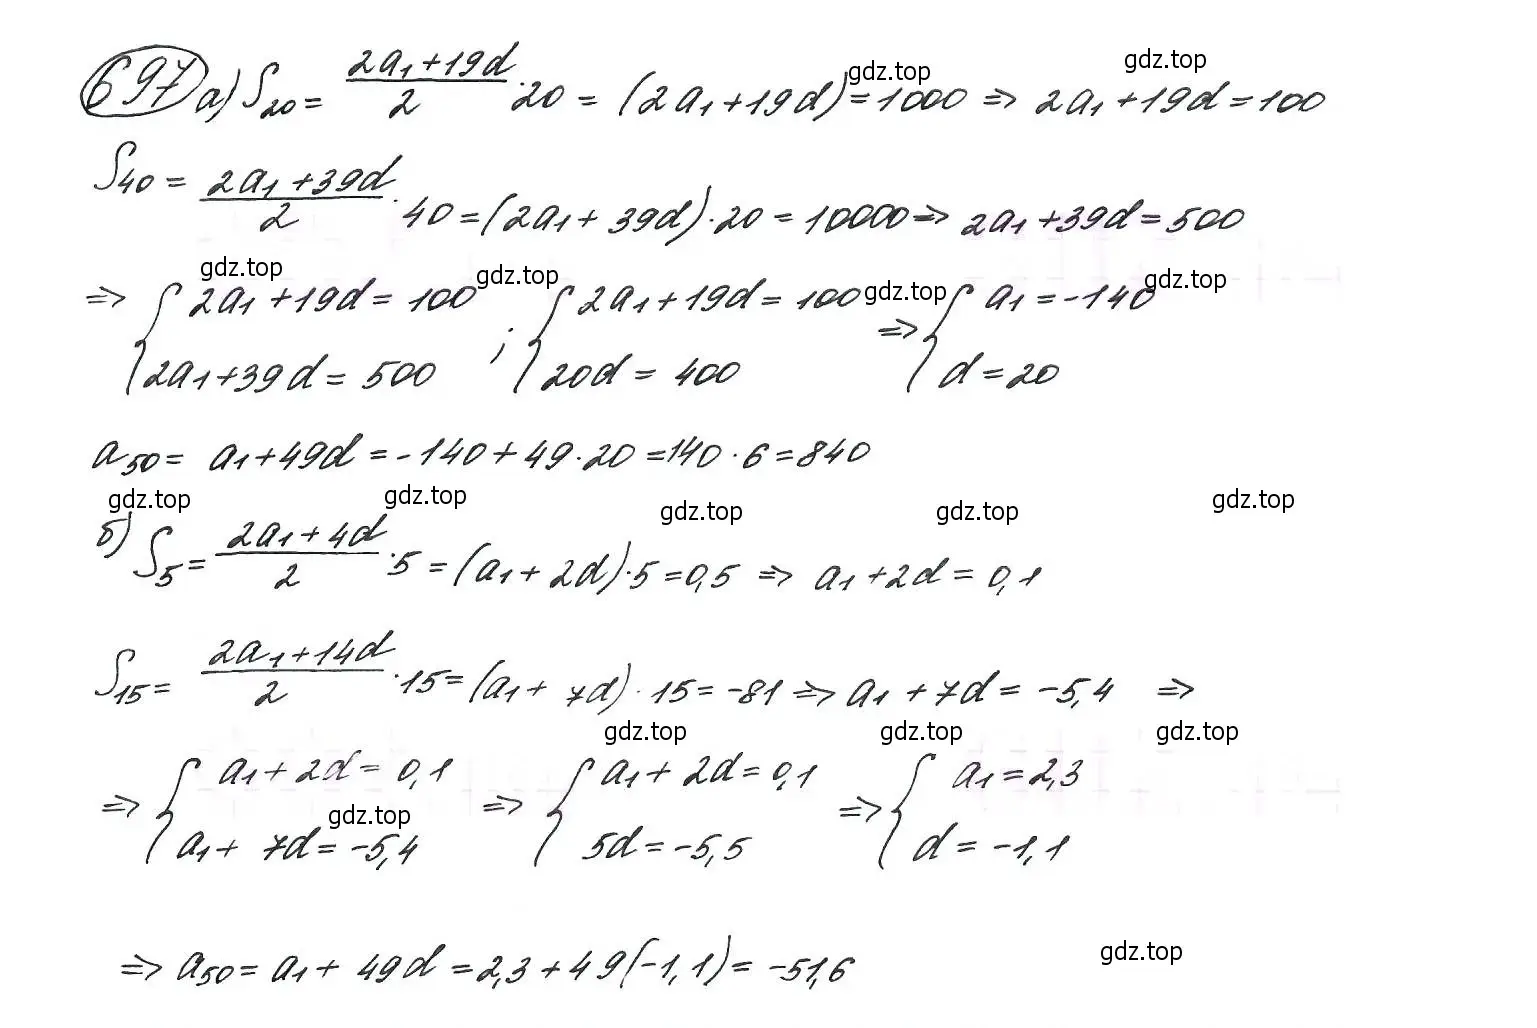 697 а) S₂₀ = (2a₁+19d)/2 · 20 = (2a₁+19d) = 1000 ⇒ 2a₁+19d = 100
gdz.top gdz.top
S₄₀ = (2a₁+39d)/2 · 40 = (2a₁+39d)·20 = 10000 ⇒ 2a₁+39d = 500
gdz.top gdz.top gdz.top gdz.top
⇒ { 2a₁+19d = 100 ; { 2a₁+19d = 100 ⇒ { a₁ = -140
2a₁+39d = 500 20d = 400 d = 20
a₅₀ = a₁+49d = -140+49·20 = 140·6 = 840
gdz.top gdz.top gdz.top gdz.top gdz.top
б) S₅ = (2a₁+4d)/2 · 5 = (a₁+2d)·5 = 0,5 ⇒ a₁+2d = 0,1
S₁₅ = (2a₁+14d)/2 · 15 = (a₁+7d)·15 = -81 ⇒ a₁+7d = -5,4 ⇒
gdz.top gdz.top gdz.top
⇒ { a₁+2d = 0,1 ⇒ { a₁+2d = 0,1 ⇒ { a₁ = 2,3
gdz.top
a₁+7d = -5,4 5d = -5,5 d = -1,1
⇒ a₅₀ = a₁+49d = 2,3+49(-1,1) = -51,6
gdz.top